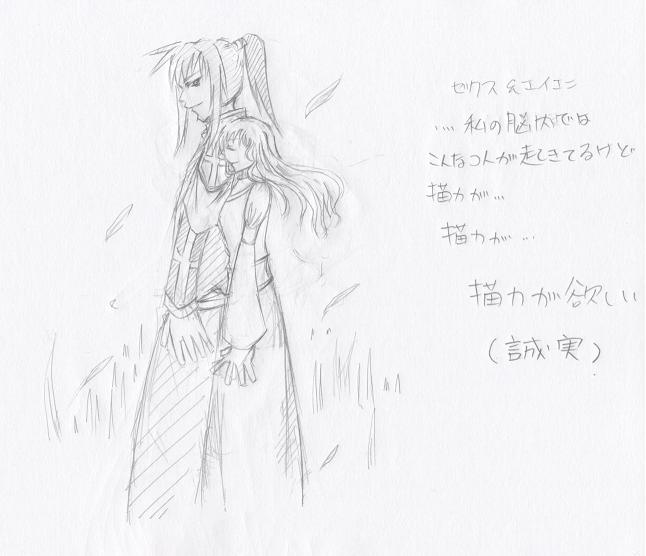 ゼクス &エイエン
.... 私の脳内では
こんな2人が起きてるけど
描力が...
描力が...
描力が欲しい
(誠実)